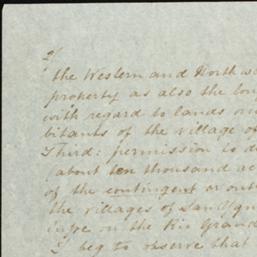 2/
the Western and North we
property as also the
with regard to lands
bitants of the village of
Third: permission is d
(about ten thousand ac
of the contingent or out
the villages of San
on the Rio Grand
I beg to observe that